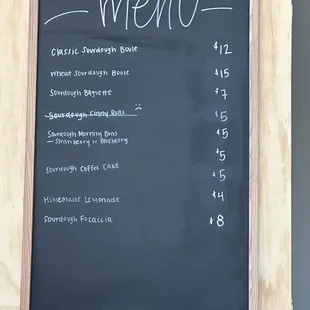 menu
Classic Sourdough Boule $12
Wheat Sourdough Boule $15
Sourdough Baguette $7
Sourdough Cinny Rolls $5
Sourdough Morning Buns $5
- Strawberry or Blueberry
$5
Sourdough Coffee Cake $5
Homemade Lemonade $4
Sourdough Focaccia $8